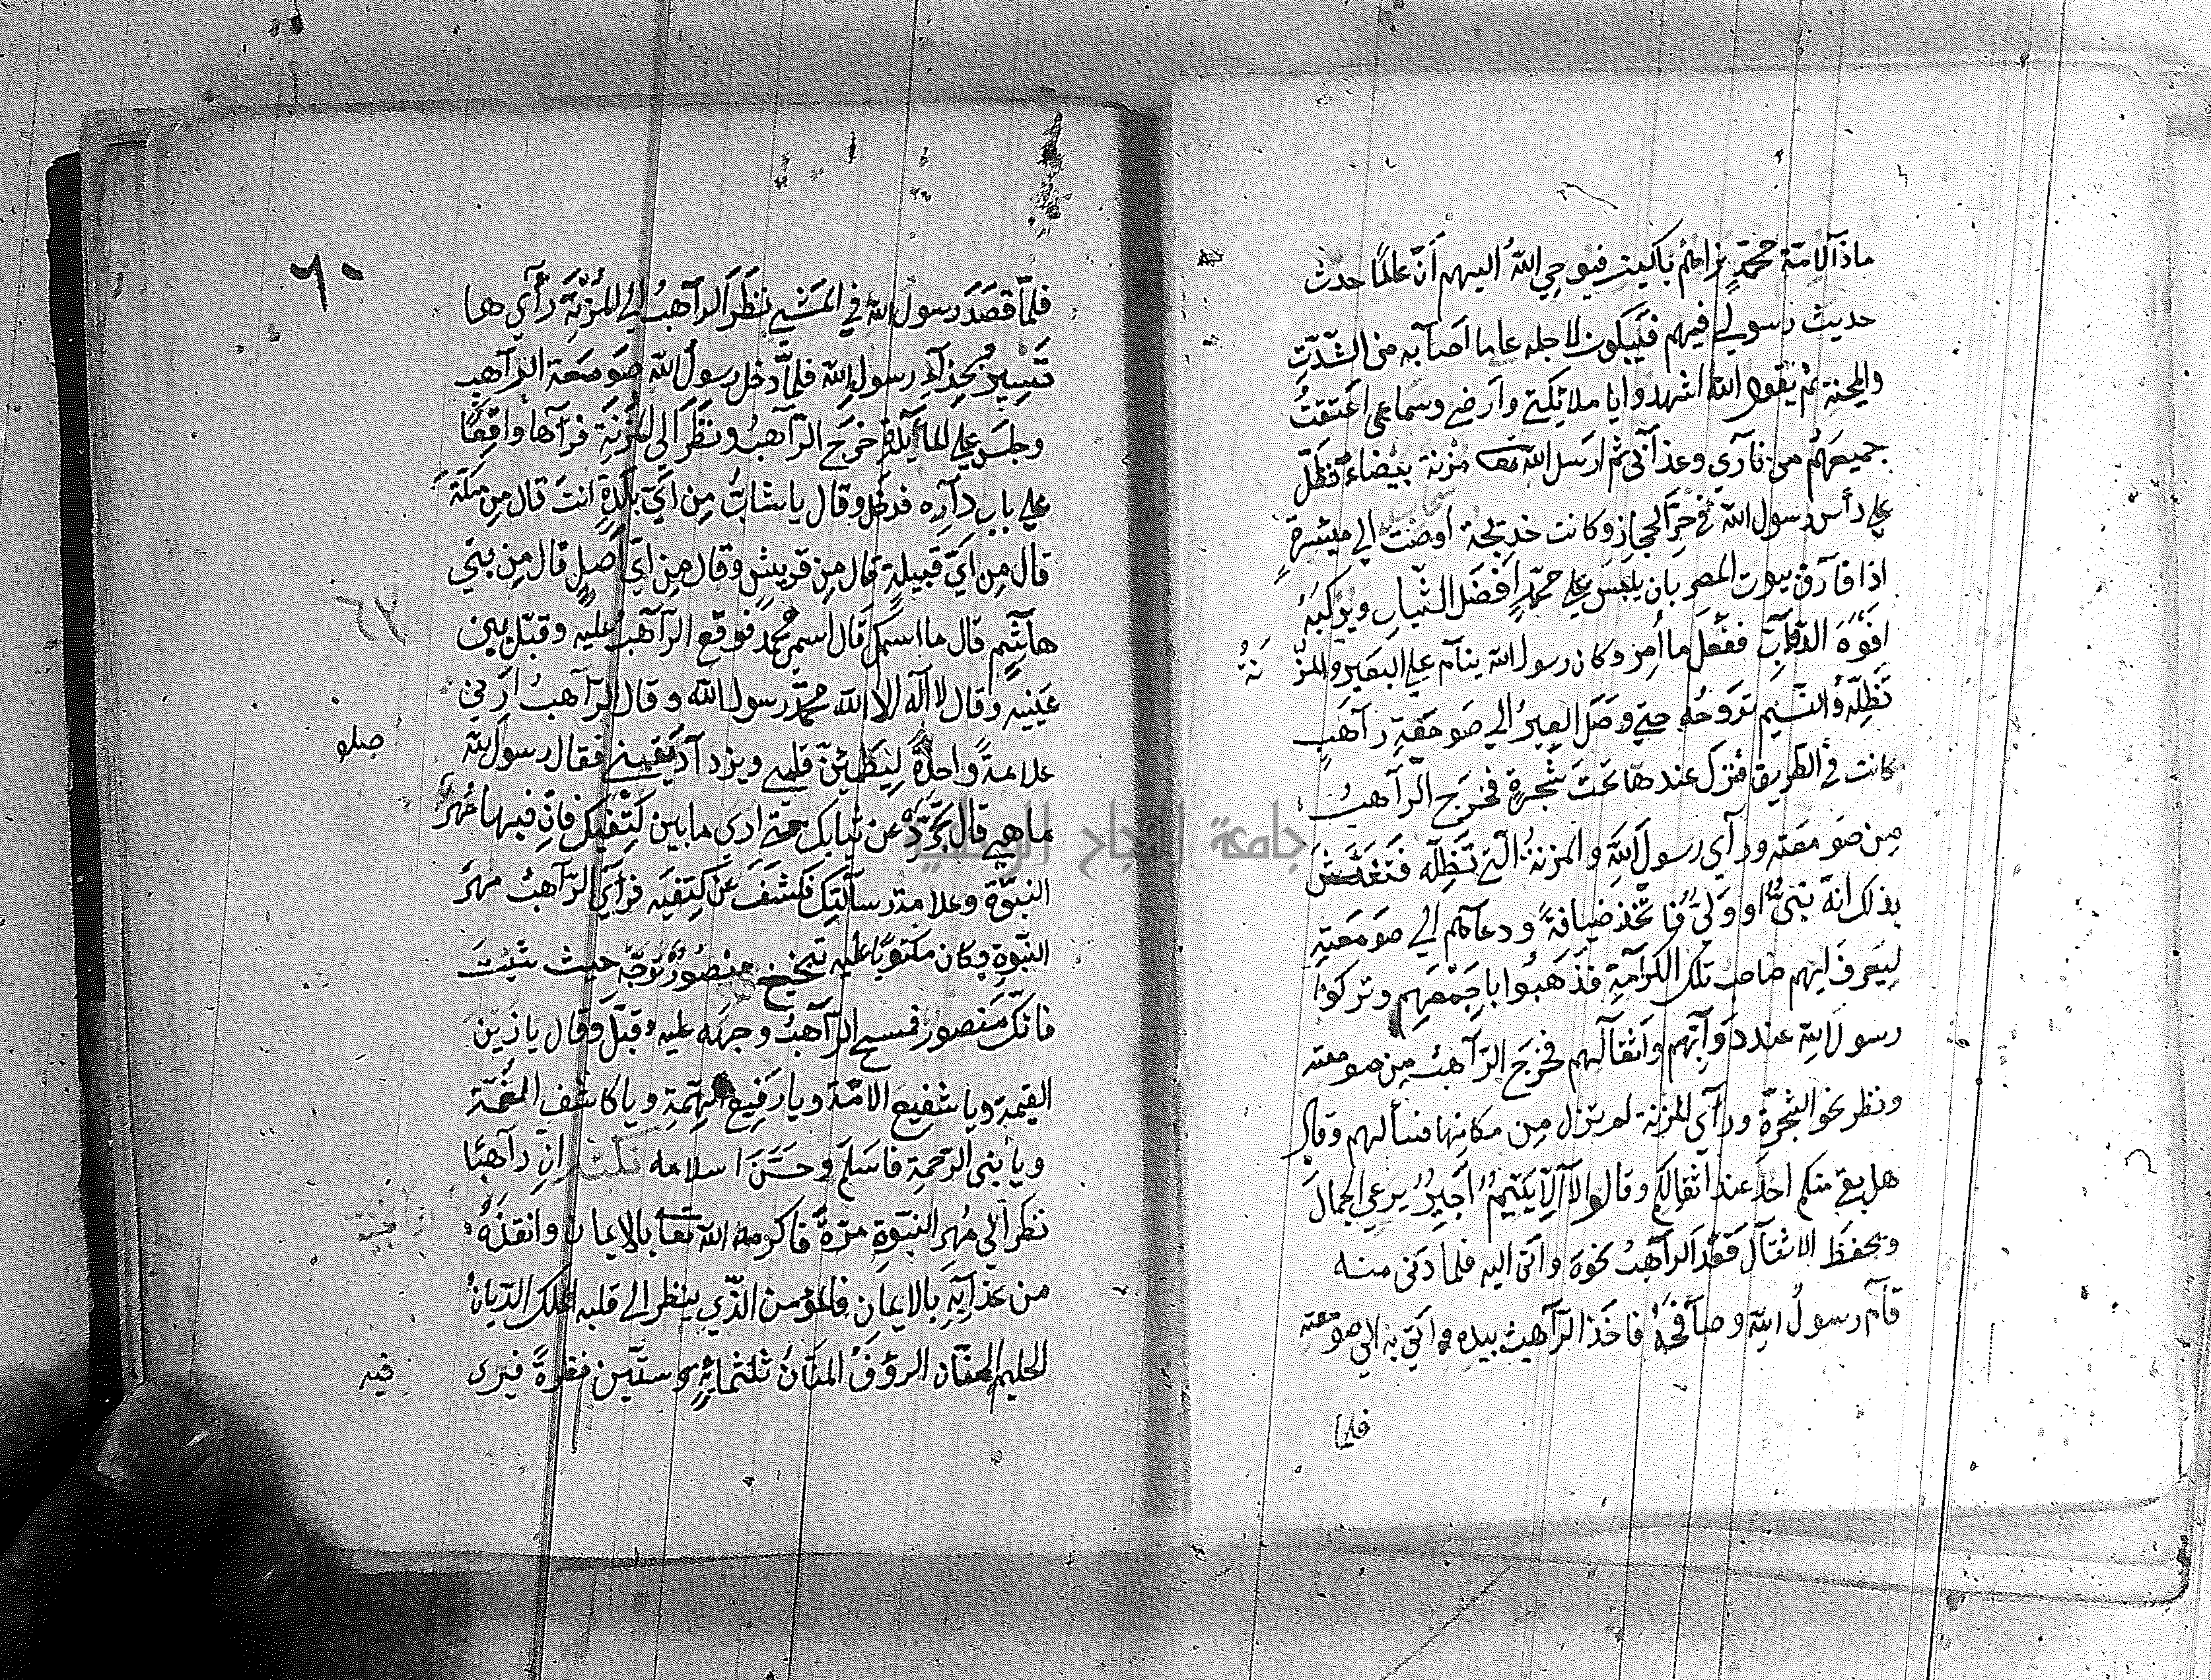 ماذا لامة محمد نراهم باكين فيوحي الله اليهم أنّ عالمًا حدث
حديث رسولي فيهم فيبكون لاجله عاما اصابه من الشدّت
والمحنة ثم يقول الله اشهدوا يا ملائكتي وأرضي وسماءي اعتقتُ
جميعهم من ناري وعذابي ثم ارسل الله تعا مزنة بيضاء تظل
علي رأس رسول الله في حرّ الحجاز وكانت خديجة اوصت الي ميسرة
اذا فارق بيوت المصر بان يلبس علي محمّدٍ افضل الثياب ويركبه
افوه الدّوابّ ففعل ما أمر وكان رسول الله ينام علي البعير والمزنةُ
تظلّه والنسيم تروحه حتي وصل العير الي صومعة راهبٍ
كانت في الطريق فنزل عندها تحت شجرة فخرج الرّاهبُ
من صومعته ورآي رسول الله والمزنة الّتي تظلّه فتفرّس
بذلك انه نبيٌّ او وليٌّ فاتخذ ضيافةً ودعاكم الي صومعته
ليعرف ايهم صاحب تلك الكرامة فذهبوا باجمعهم وتركوا
رسول الله عند دوآبّهم واثقالهم فخرج الرّاهب من صومعته
ونظر نحو الشجرة ورآي المزنة لم تزل من مكانها فسألهم وقال
هل بقي منكم احد عند اثقالكم وقالوا لا الّا يتيمٌ اجيرٌ يرعي الجمال
ويحفظ الاثقال فقد الرآهب نحوه واتى اليه فلما دنى منه
قام رسول الله وصافحه فاخذ الرّاهب بيده واتي به الي صومعته
فلما
٦٠
فلمّا قصد رسول الله في المشي نظر الرآهب الي المزنة رأي ها
تسير بحذاء رسول الله فلمّا دخل رسول الله صومعة الرّاهب
وجلس علي المائدة خرج الرّاهب ونظر الى المزنة فرآها واقفًا
علي باب داره فدخل وقال يا شابّ من ايّ بلدةٍ انت قال من مكّة
قال من ايّ قبيلةٍ قال من قريش وقال من ايّ اصلٍ قال من بني
هاشم قال ما اسمك قال اسمي محمد فوقع الرّاهب عليه وقبّل بين
عينيه وقال لا اله الا الله محمّد رسول الله وقال الرّاهب ارني
علامةً واحدةً ليطمئنّ قلبي ويزداد يقيني فقال رسول الله
صلو
ما هي قال تجرّد عن ثيابك حتي اري ما بين كتفيك فانّ فيها مُهرَ
النبوّة وعلامة رسالتك فكشف عن كتفيه فرأي الرّاهب مهر
النبّوة وكان مكتوبًا عليه منصورٌ توجّه حيث شئتَ
فانّك منصور فمسح الرّاهب وجهه عليه وقبّل وقال يا زين
القيمة ويا شفيع الامّة ويا رفيع الهمّة ويا كاشف الغمّة
ويا نبي الرّحمة فاسلم وحسّن اسلامه ان راهبًا
نظر الي مُهر النبّوة مرّة فاكرمه الله تعا بالايمان وانقذه
من عذابه بالايمان فالمؤمن الذّي ينظر الي قلبه الملك الديّانُ
الحليم الحنّان الرؤف المنّانُ ثلثمائة وستّين نظرةً فيرى
فيه